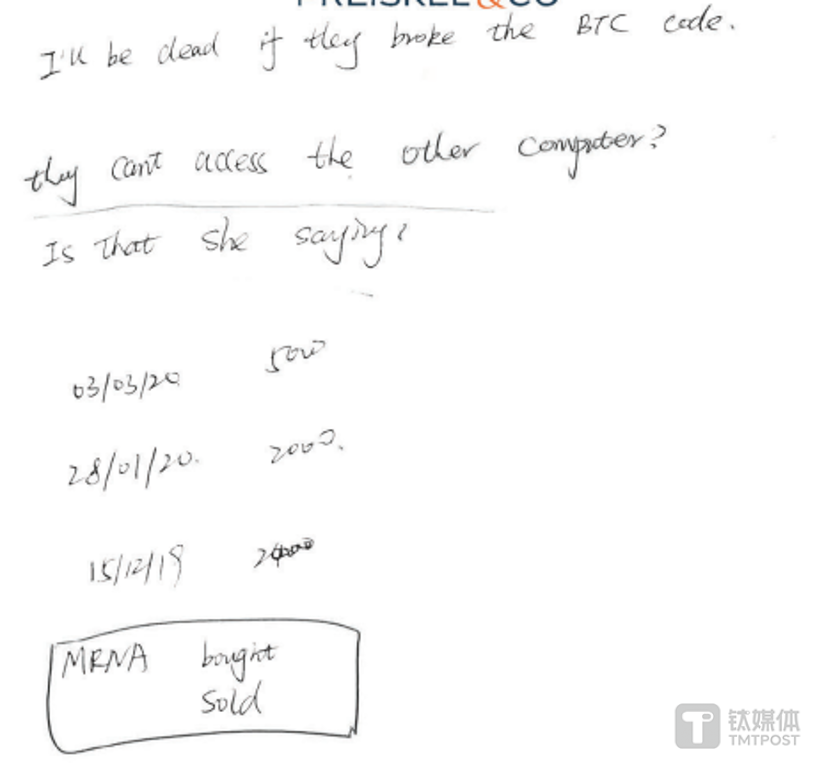 PREISKEL&CO
I'll be dead if they broke the BTC code.
they can't access the other computer?
Is that she saying?
03/03/20 5000
28/01/20. 2000.
15/12/19
MRNA bought
sold
钛媒体
TMTPOST